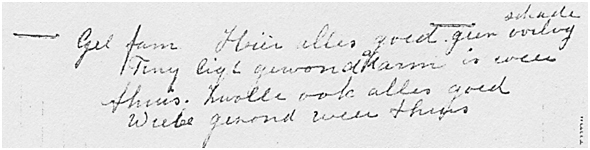 schade
Gel fam Hier alles goed geen oorlog
Tiny ligt gewond arm is weer
thuis. Zwolle ook alles goed
Wiebe gezond weer thuis